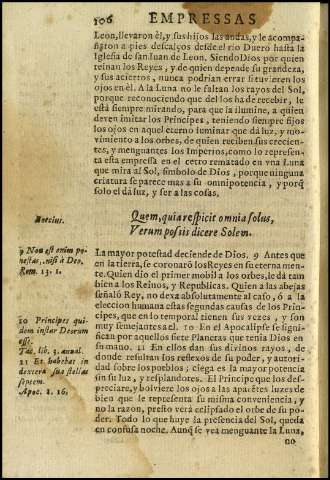 106 EMPRESSAS
Leon, llevaron èl, y sus hijos las andas, y le acompa-
ñaron a pies descalços desde el rio Duero hasta la
Iglesia de san Iuan de Leon. Siendo Dios por quien
reinan los Reyes, y de quien depende su grandeza,
y sus aciertos, nunca podrian errar si tuvieren los
ojos en èl. A la Luna no le faltan los rayos del Sol,
porque reconociendo que del los ha de recebir, le
està siempre mirando, para que la ilumine, a quien
deven imitar los Principes, teniendo siempre fijos
los ojos en aquel eterno luminar que dà luz, y mo-
vimiento a los orbes, de quien reciben sus crecien-
tes, y menguantes los Imperios, como lo represen-
ta esta empressa en el cetro rematado en vna Luna
que mira al Sol, simbolo de Dios, porque ninguna
criatura se parece mas a su omnipotencia, y porq̃
solo el dà luz, y ser a las cosas.
Boetius.
Quem, quia respicit omnia solus,
Verum possis dicere Solem.
9 Non est enim po-
testas, nisi à Deo,
Rom. 13. 1.
La mayor potestad deciende de Dios. 9 Antes que
en la tierra, se coronarõ los Reyes en su eterna men-
te. Quien diò el primer mobil a los orbes, le dà tam
bien a los Reinos, y Republicas. Quien a las abejas
señalò Rey, no deva absolutamente al caso, ò a la
eleccion humana estas segundas causas de los Prin-
10 Principes qui-
dem instar Deorum
esse.
Tac. lib. 3. annal.
11 Et habebat in
dextera sua stellas
septem.
Apoc. 1. 16.
cipes, que en lo temporal tienen sus vezes, y son
muy semejantes a el. 10 En el Apocalipse se signi-
fican por aquellos siete Planetas que tenia Dios en
su mano. 11 En ellos dan sus divinos rayos, de
donde resultan los reflexos de su poder, y autori-
dad sobre los pueblos; ciega es la mayor potencia
sin su luz, y resplandores. El Principe que los des-
preciare, y bolviere los ojos a las aparẽtes luzes de
bien que le representa su misma conveniencia, y
no la razon, presto verà eclipsado el orbe de su po-
der. Todo lo que huye la presencia del Sol, queda
en confusa noche. Aunq̃ se vea menguante la Luna,
no